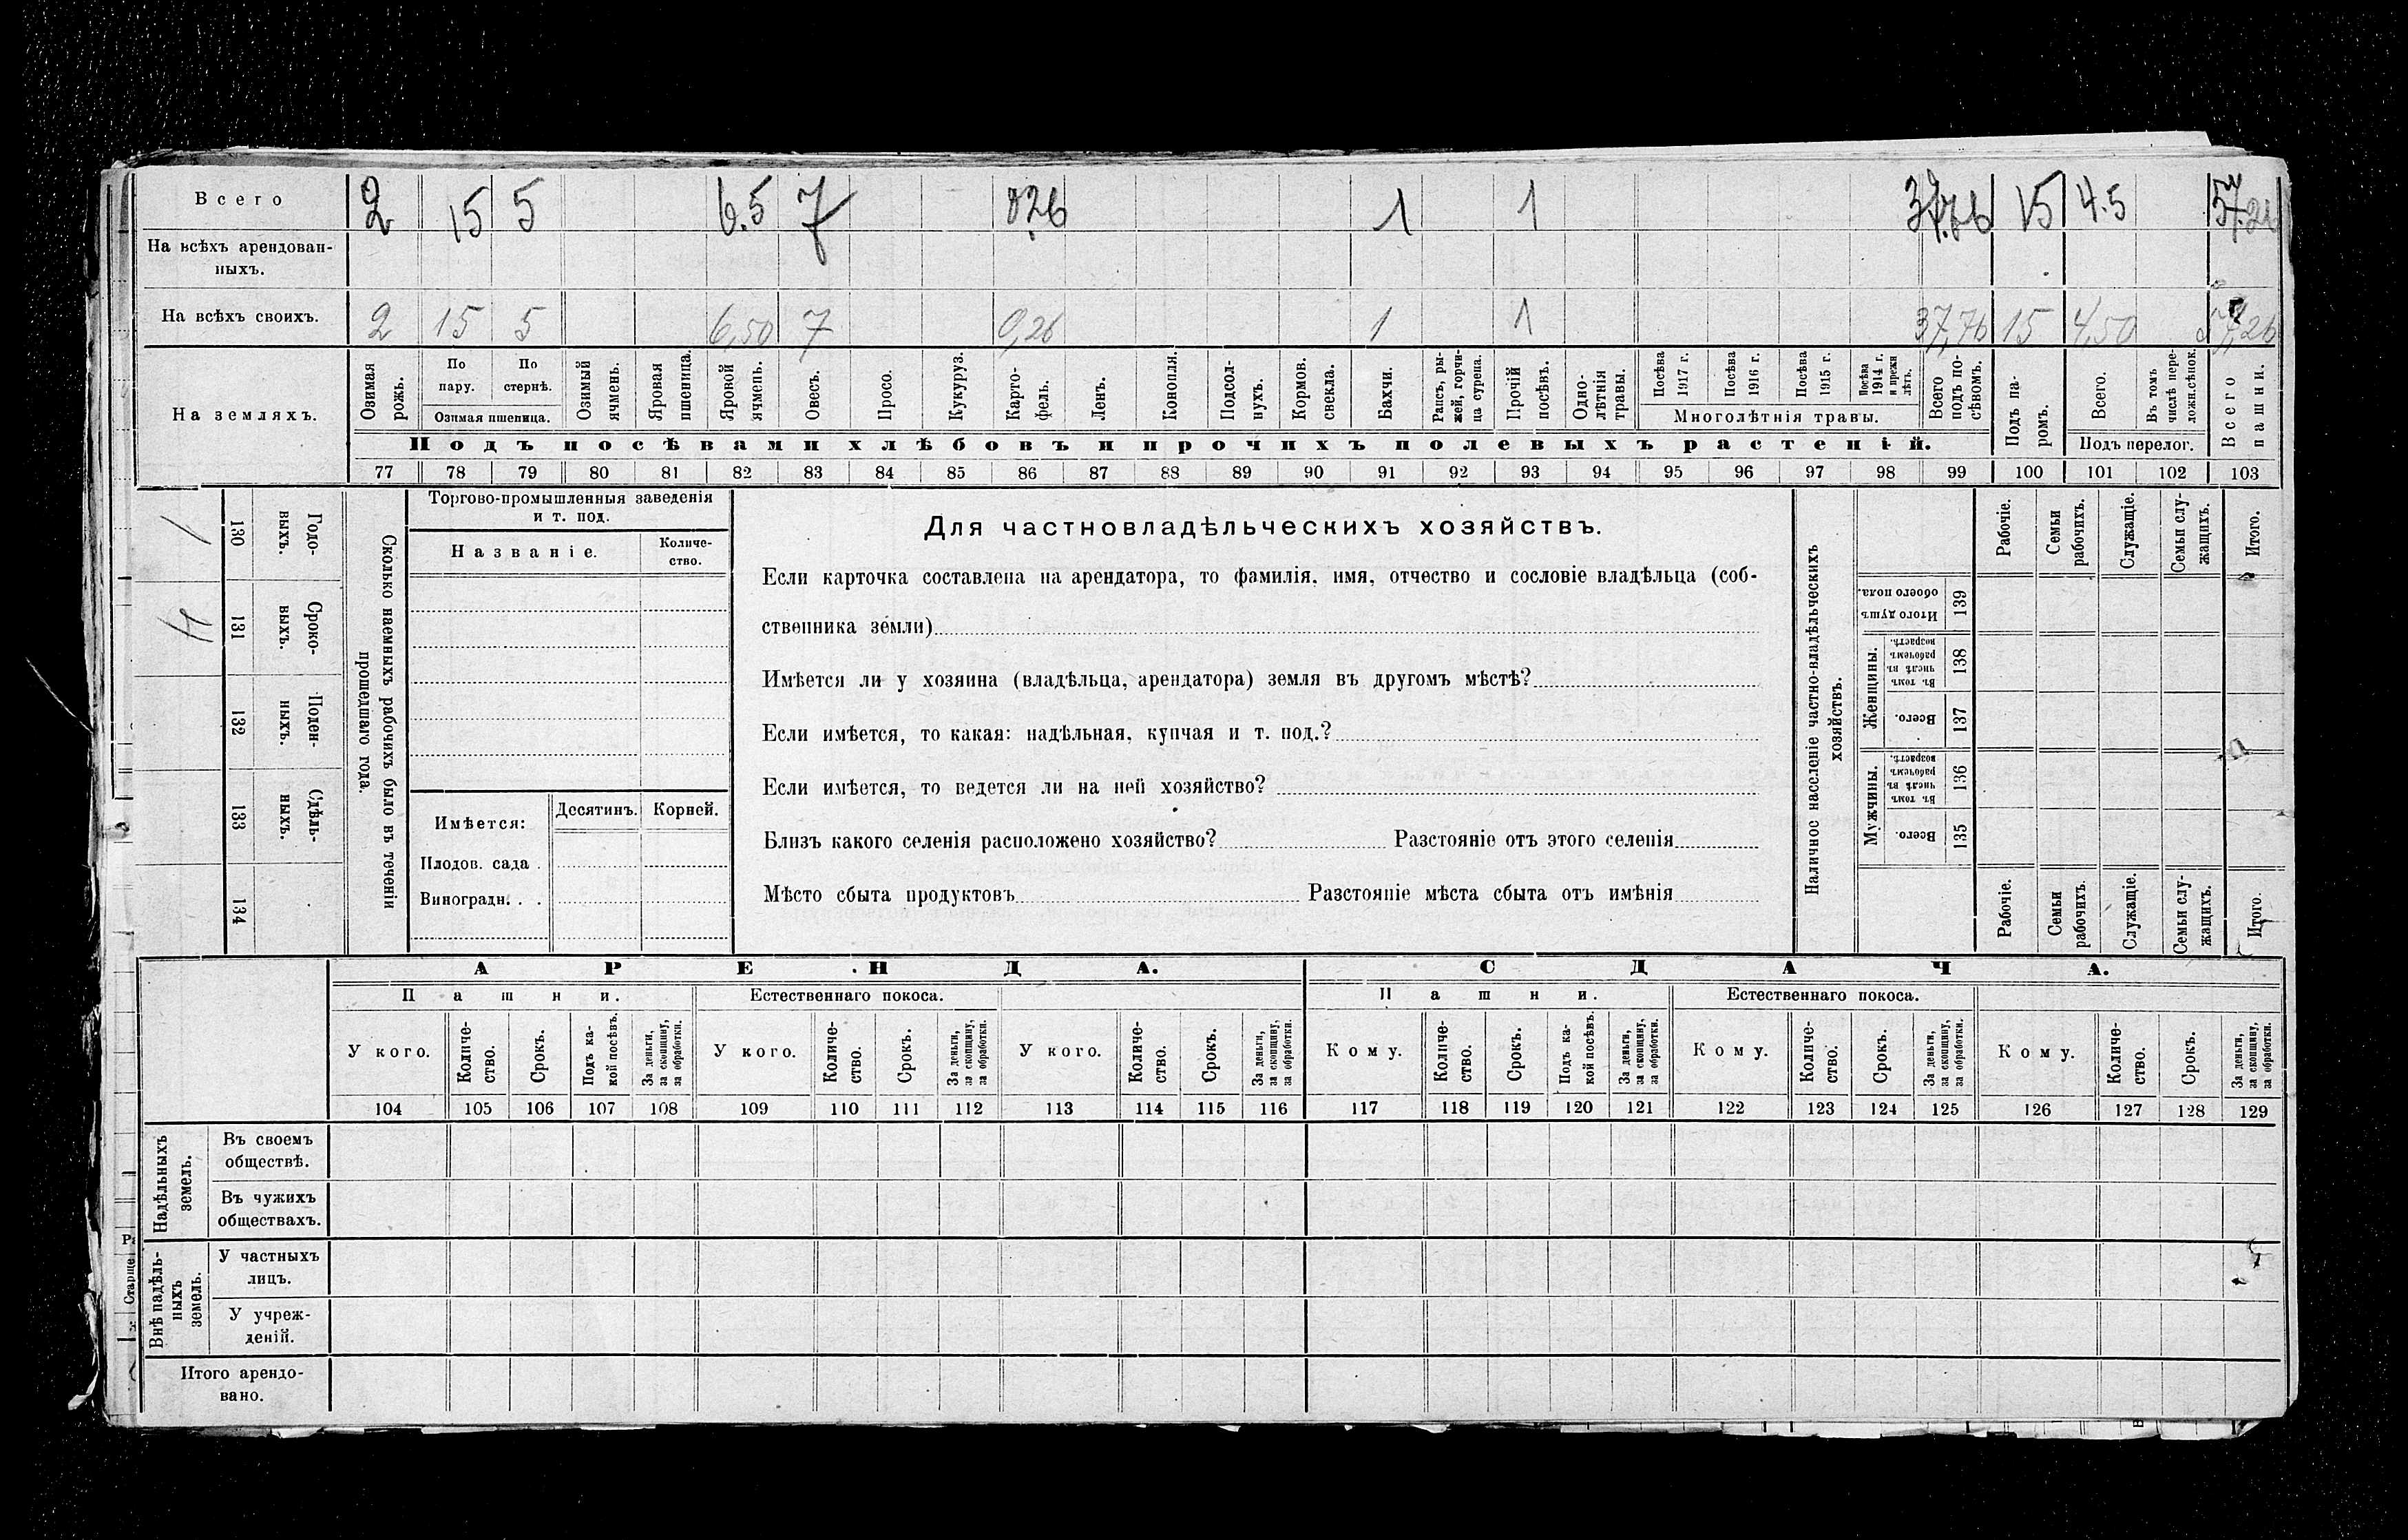 Всего 2 15 5 6.5 7 0.26 1 1 37.76 15 4.5
На всѣхъ арендован-
ныхъ.
На всѣхъ своихъ. 2 15 5 6,50 7 0,26 1 1 37,76 15 4,50 57,26
На земляхъ.
Озимая рожь.
По пару.
По стернѣ.
Озимая пшеница.
Озимый ячмень.
Яровая пшеница.
Яровой ячмень.
Овесъ.
Просо.
Кукуруз.
Карто-
фель.
Ленъ.
Конопля.
Подсол-
нухъ.
Кормов. свекла.
Бахчи.
Рапсъ, ры-
жей, горчи-
ца сурепа.
Прочій посѣвъ.
Одно-
лѣтнія травы.
Посѣва 1917 г.
Посѣва 1916 г.
Посѣва 1915 г.
Посѣва 1914 г. и прежн лѣтъ.
Многолѣтнія травы.
Всего подъ по-
сѣвомъ.
Подъ па-
ромъ.
Всего.
Въ томъ числѣ пере-
ложн.сѣнок.
Подъ перелог.
Всего пашни.
Подъ посѣвами хлѣбовъ и прочихъ полевыхъ растеній.
77 78 79 80 81 82 83 84 85 86 87 88 89 90 91 92 93 94 95 96 97 98 99 100 101 102 103
1
4
130 131 132 133 134
Годо-
выхъ.
Сроко-
выхъ.
Поден-
ныхъ.
Сдѣль-
ныхъ.
Сколько наемныхъ рабочихъ было въ теченіи
прошедшаго года.
Торгово-промышленныя заведенія
и т. под.
Названіе.
Количе-
ство.
Имѣется:
Десятинъ.
Корней.
Плодов. сада .
Виноградн. . .
Для частновладѣльческихъ хозяйствъ.
Если карточка составлена на арендатора, то фамилія, имя, отчество и сословіе владѣльца (соб-
ственника земли)
Имѣется ли у хозяина (владѣльца, арендатора) земля въ другомъ мѣстѣ?
Если имѣется, то какая: надѣльная, купчая и т. под.?
Если имѣется, то ведется ли на ней хозяйство?
Близъ какого селенія расположено хозяйство? Разстояніе отъ этого селенія
Мѣсто сбыта продуктовъ Разстояніе мѣста сбыта отъ имѣнія
Наличное населеніе частно-владѣльческихъ
хозяйствъ.
Рабочіе.
Семьи рабочихъ.
Служащіе.
Семьи слу-
жащихъ.
Итого.
Итого душъ обоего пола.
139
Женщины.
Въ томъ числѣ въ рабочемъ возрастѣ.
138
Всего.
137
Мужчины.
Въ томъ числѣ въ рабочемъ возрастѣ.
136
Всего.
135
Рабочіе.
Семьи рабочихъ.
Служащіе.
Семьи слу-
жащихъ.
Итого.
АРЕНДА.
СДАЧА.
Пашни.
Естественнаго покоса.
Пашни.
Естественнаго покоса.
У кого.
Количе-
ство.
Срокъ.
Подъ ка-
кой посѣвъ.
За деньги, за скопщину, за обработки.
У кого.
Количе-
ство.
Срокъ.
За деньги, за скопщину, за обработки.
У кого.
Количе-
ство.
Срокъ.
За деньги, за скопщину, за обработки.
Кому.
Количе-
ство.
Срокъ.
Подъ ка-
кой посѣвъ.
За деньги, за скопщину, за обработки.
Кому.
Количе-
ство.
Срокъ.
За деньги, за скопщину, за обработки.
Кому.
Количе-
ство.
Срокъ.
За деньги, за скопщину, за обработки.
104 105 106 107 108 109 110 111 112 113 114 115 116 117 118 119 120 121 122 123 124 125 126 127 128 129
Надѣльныхъ земель.
Въ своемъ
обществѣ.
Въ чужихъ
обществахъ.
Внѣ надѣль-
ныхъ земель.
У частныхъ
лицъ.
У учреж-
деній.
Итого арендо-
вано.
Старше